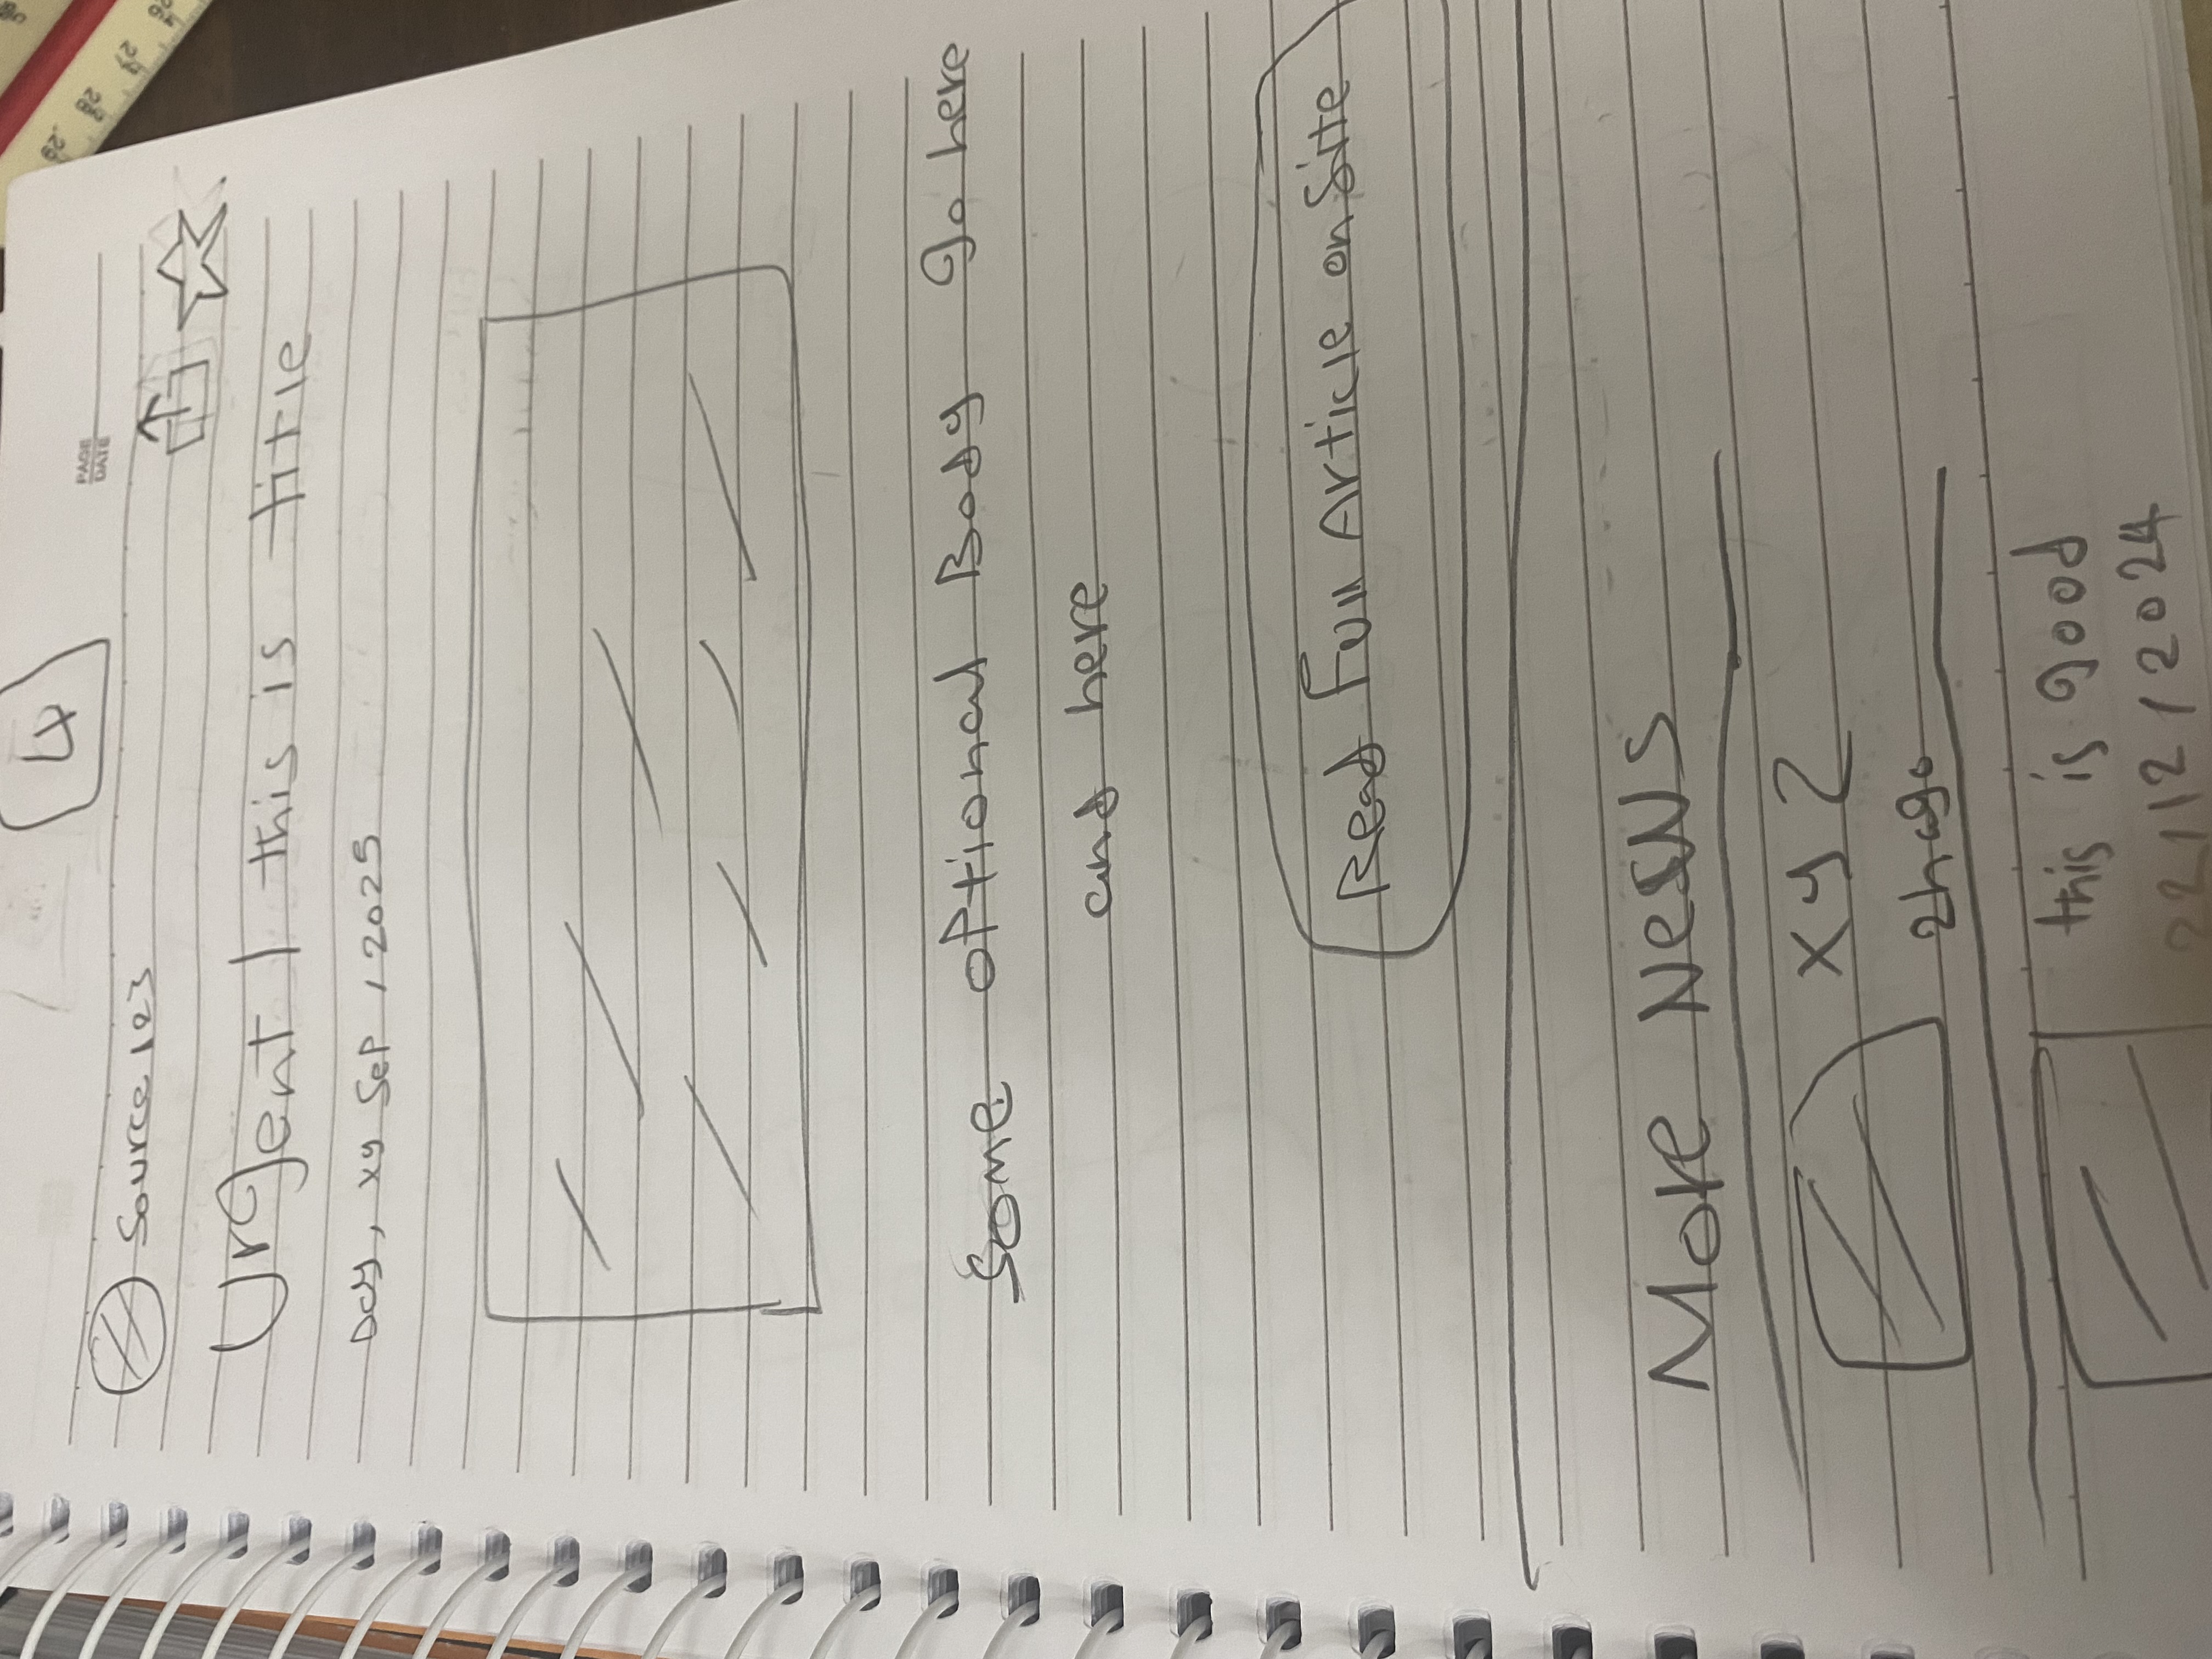 4
PAGE
DATE
Source 123
Urgent | this is title
Day, xy Sep, 2025
Some optional Body go here
and here
Read Full Article on Site
More News
xyz
2h ago
this is good
22/12/2024
29
28
27
26